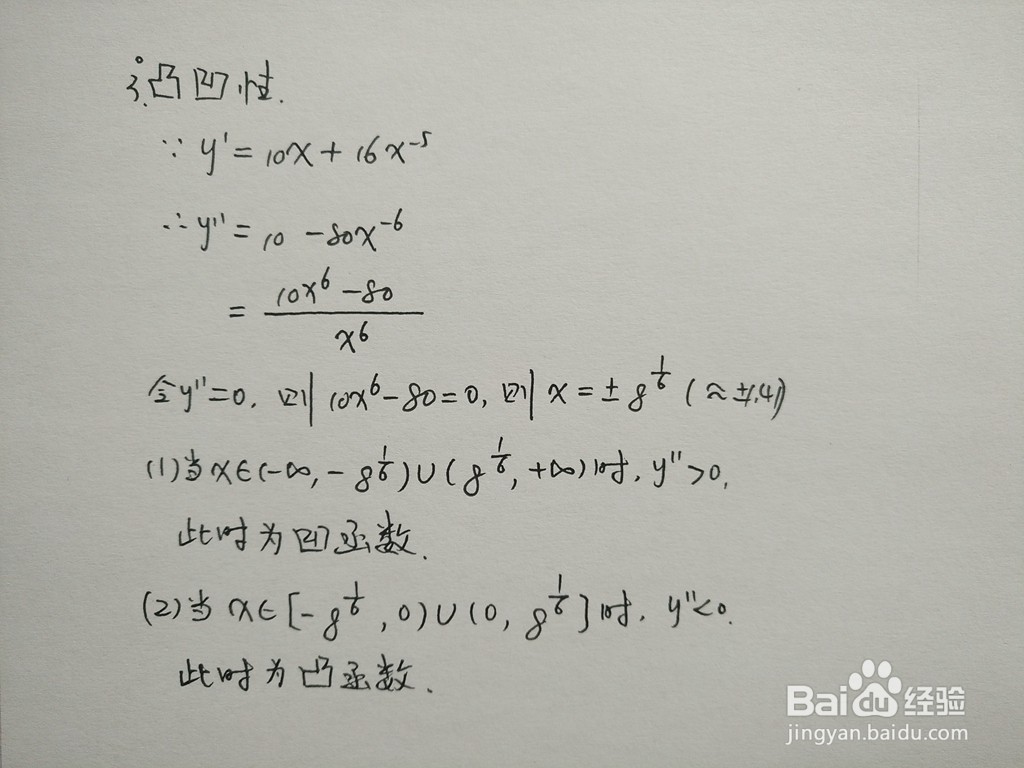 3°.凸凹性.
∵ y' = 10x + 16x⁻⁵
∴ y'' = 10 - 80x⁻⁶
= (10x⁶ - 80) / x⁶
令y''=0, 则10x⁶-80=0, 则x=±8^(1/6) (≈±1.41)
(1)当x∈(-∞, -8^(1/6))∪(8^(1/6), +∞)时, y''>0,
此时为凹函数.
(2)当x∈[-8^(1/6), 0)∪(0, 8^(1/6)]时, y''<0.
此时为凸函数.
Baidu经验
jingyan.baidu.com